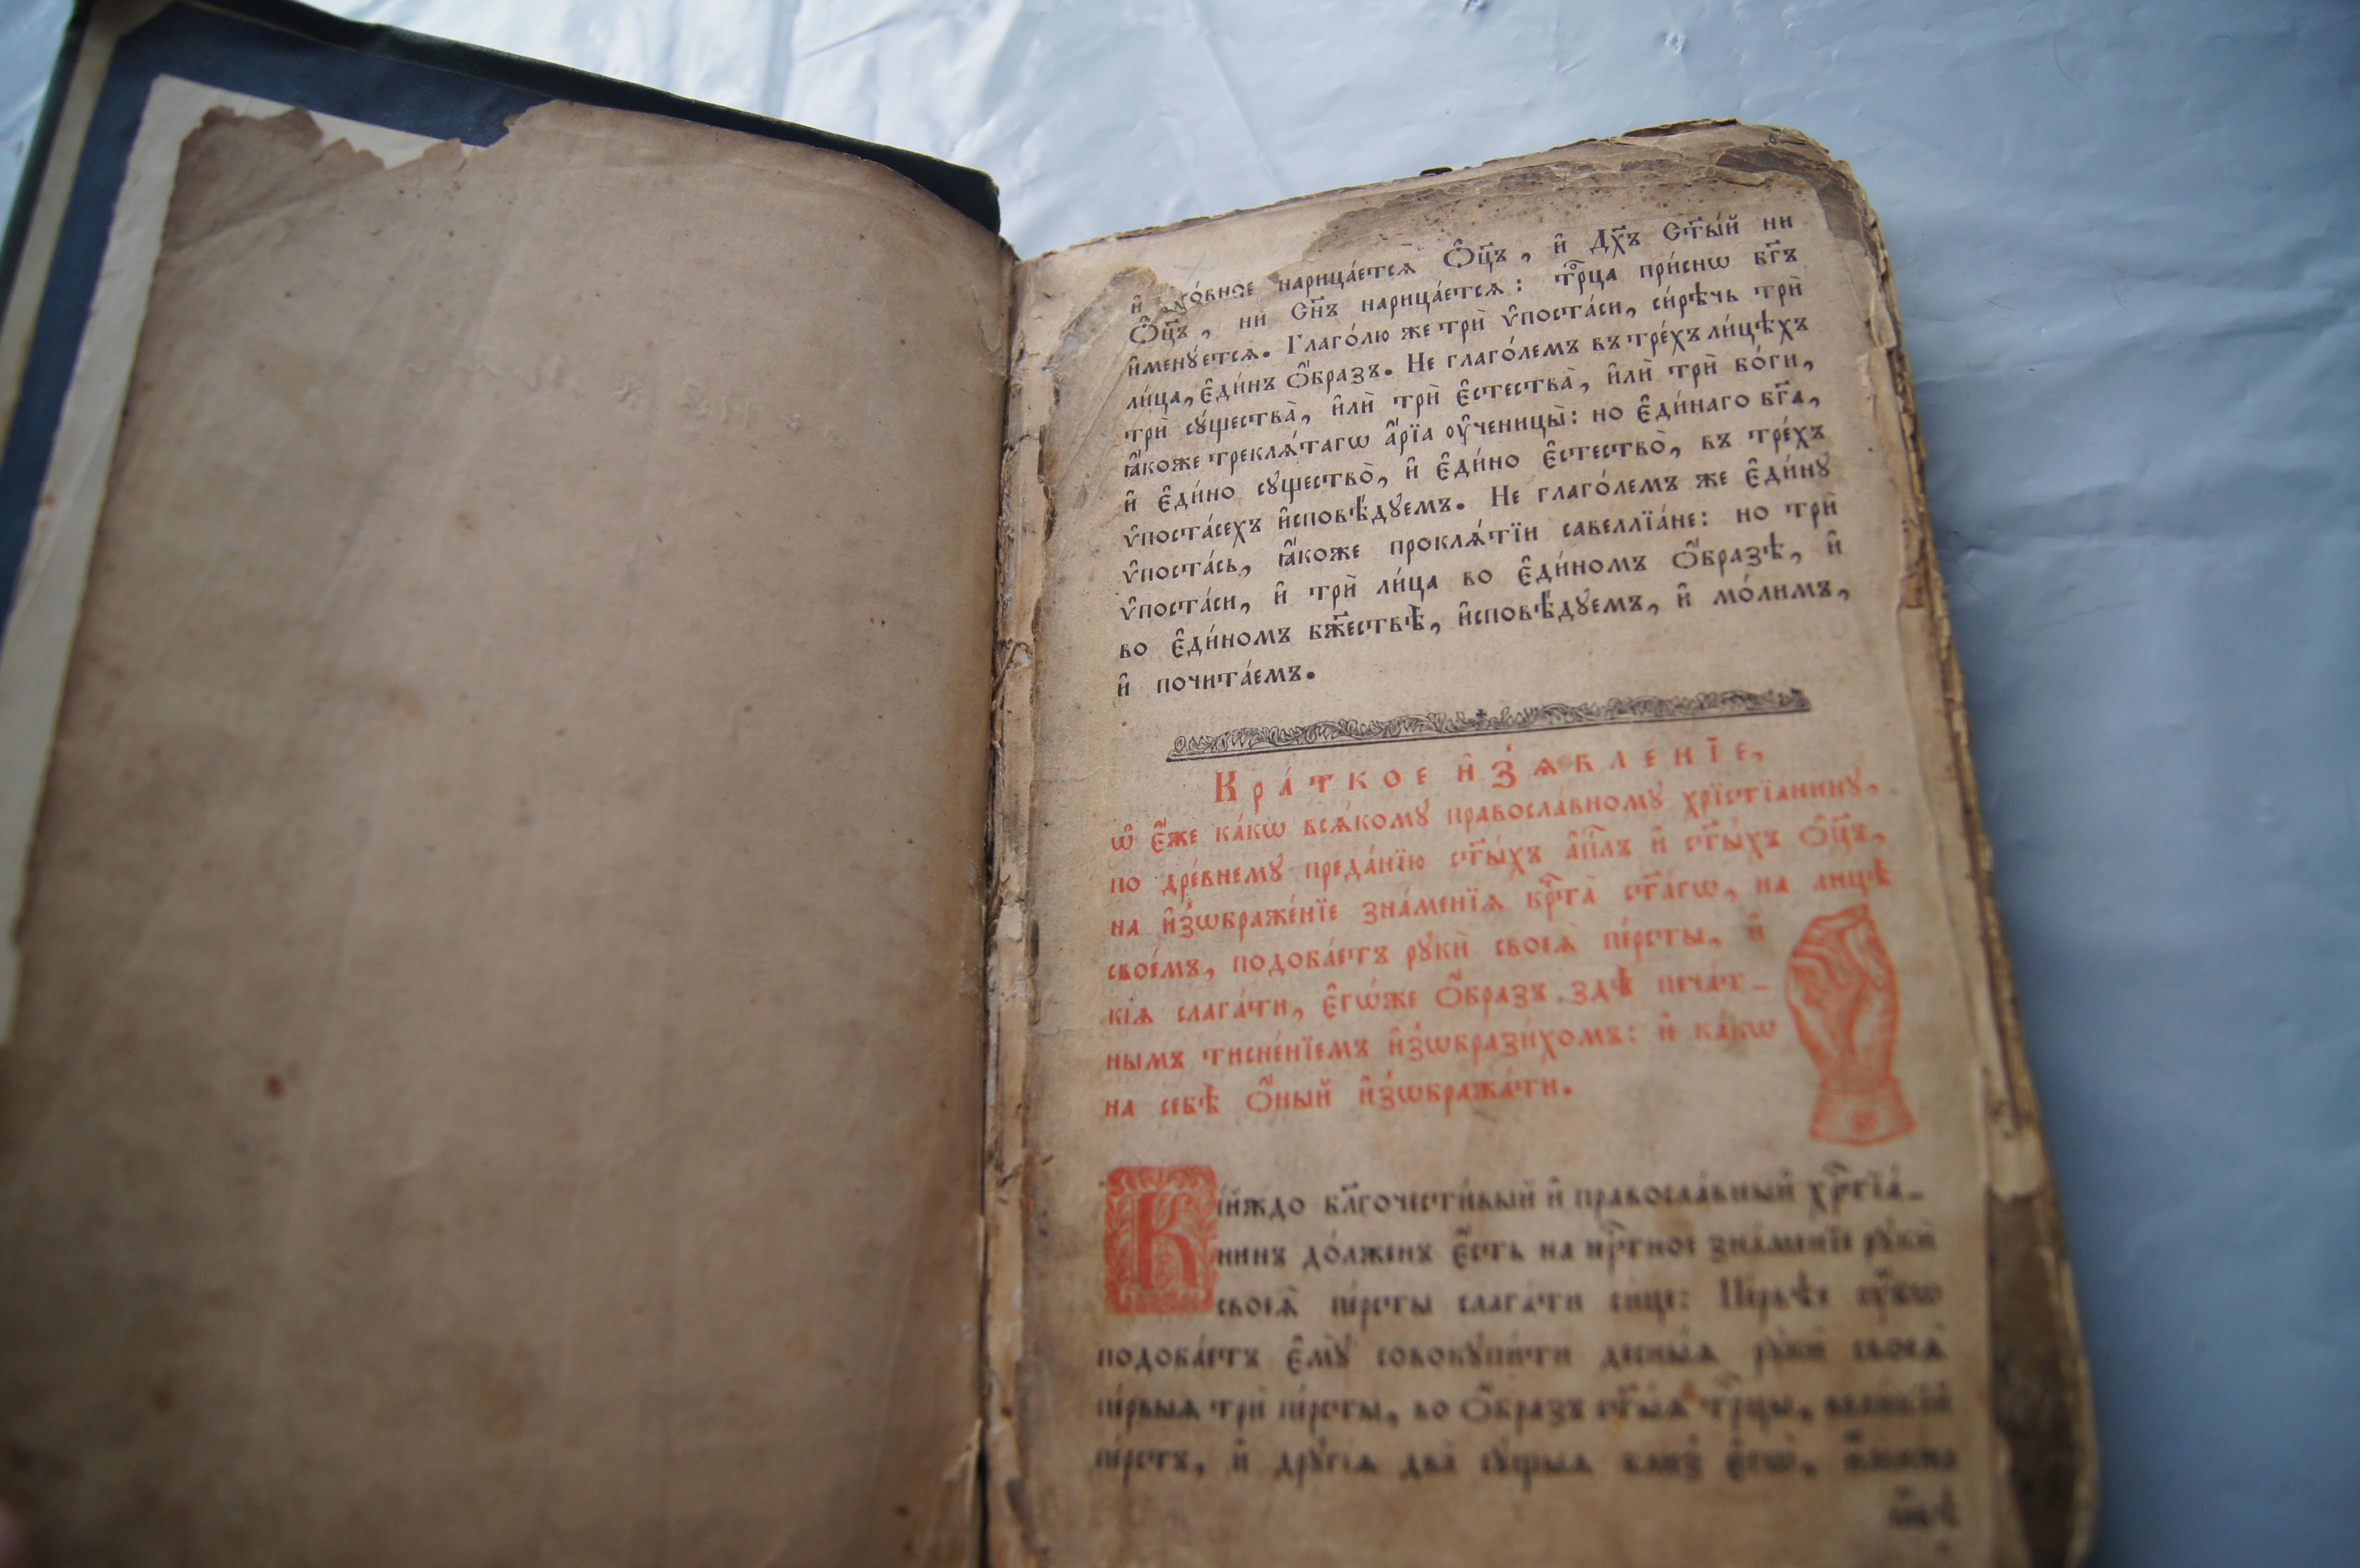 и҆ сло́вное нарица́етсѧ Ѻ҆ц҃ъ, и҆ Дх҃ъ Ст҃ы́й ни
Ѻ҆ц҃ъ, ни Сн҃ъ нарица́етсѧ: трⷪ҇ца при́снѡ бг҃ъ
и҆менꙋ́етсѧ. Глаго́лю же трѝ ѵ҆поста́си, си́рѣчь трѝ
ли́ца, є҆ди́нъ ѻ҆́бразъ. Не глаго́лемъ въ тре́хъ ли́цѣхъ
трѝ сꙋ́щества̀, и҆лѝ трѝ є҆стества̀, и҆лѝ трѝ бо́ги,
ꙗ҆́коже треклѧ́тагѡ а҆́рїа ᲂу҆ченицы̀: но є҆ди́наго бг҃а,
и҆ є҆ди́но сꙋщество̀, и҆ є҆ди́но є҆стество̀, въ тре́хъ
ѵ҆поста́сехъ и҆сповѣ́дꙋемъ. Не глаго́лемъ же є҆ди́нꙋ
ѵ҆поста́сь, ꙗ҆́коже проклѧ́тїи савеллїа́не: но трѝ
ѵ҆поста́си, и҆ трѝ ли́ца во є҆ди́номъ ѻ҆́бразѣ, и҆
во є҆ди́номъ бж҃ествѣ̀, и҆сповѣ́дꙋемъ, и҆ мо́лимъ,
и҆ почита́емъ.
Кра́ткое и҆з̾ѧвле́нїе,
ѡ҆ є҆́же ка́кѡ всѧ́комꙋ правосла́вномꙋ хрїстїанинꙋ,
по дре́внемꙋ преда́нїю ст҃ы́хъ а҆пⷭ҇лъ и҆ ст҃ы́хъ ѻ҆ц҃ъ,
на и҆з̾ѡбраже́нїе зна́менїѧ крⷭ҇та̀ ст҃а́гѡ, на лицѣ̀
свое́мъ, подоба́етъ рꙋкѝ своеѧ̀ пе́рсты, и҆
кі́ѧ слага́ти, є҆гѡ́же ѻ҆́бразъ здѣ̀ печа́т-
нымъ тисне́нїемъ и҆з̾ѡбрази́хомъ: и҆ ка́кѡ
на себѣ̀ ѻ҆́ный и҆з̾ѡбража́ти.
Кі́йждо бл҃гочести́вый и҆ правосла́вный хрⷭ҇тїа́-
нинъ до́лженъ є҆́сть на крⷭ҇тное зна́менїе рꙋкѝ
своеѧ̀ пе́рсты слага́ти си́це: Пе́рвѣе ᲂу҆́бѡ
подоба́етъ є҆мꙋ̀ совокꙋпи́ти десны́ѧ рꙋкѝ своеѧ̀
пе́рвыѧ трѝ пе́рсты, во ѻ҆́бразъ ст҃ы́ѧ трⷪ҇цы, вели́кїй
пе́рстъ, и҆ дрꙋгі́ѧ два̀ сꙋ́щыѧ бли́з̾ є҆гѡ̀,